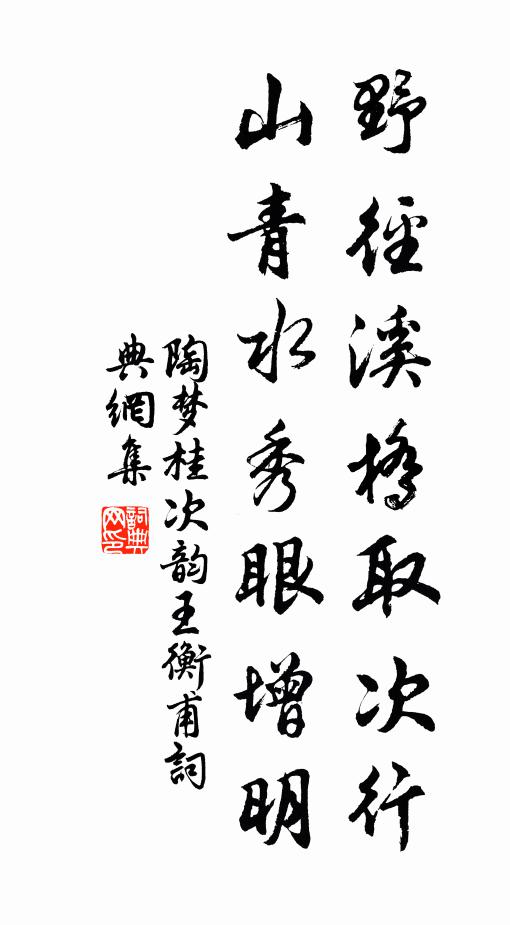 野徑溪橋取次行
山青水秀眼增明
陶梦桂次韵王衡甫詞
典網集
詞典网印